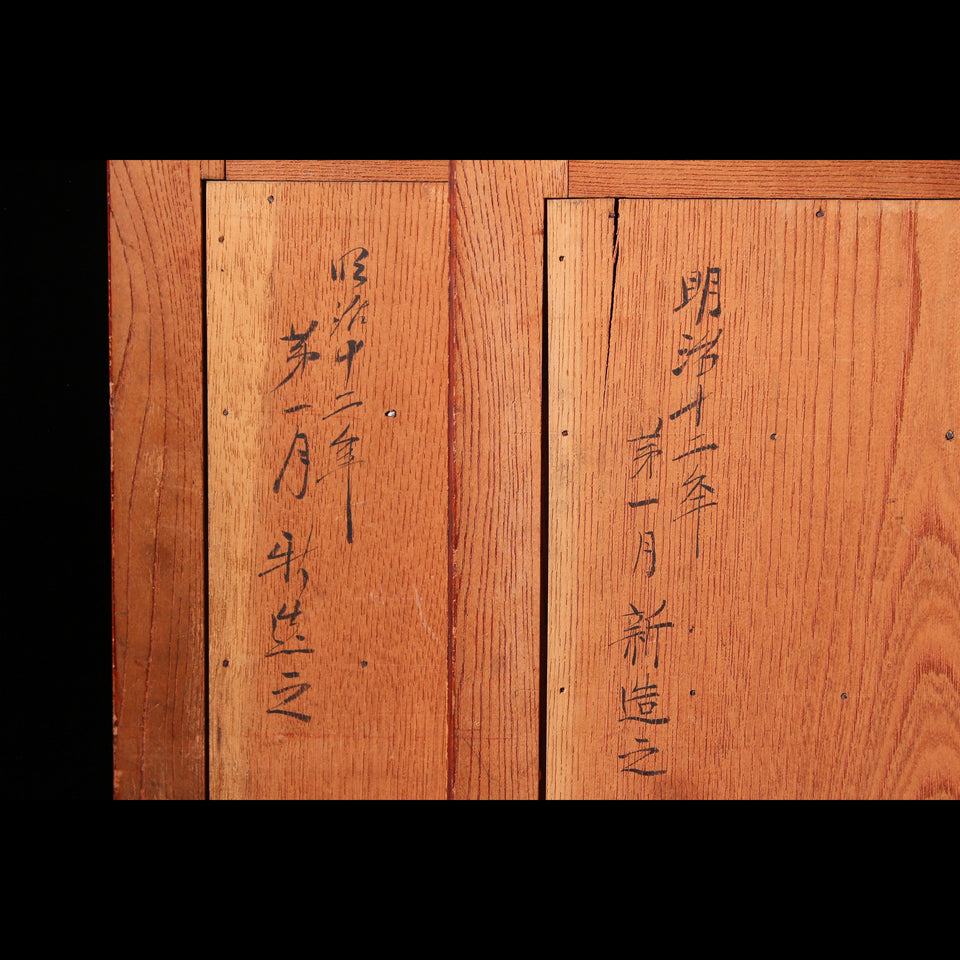 明治十二年
第一月 新造之
明治十二年
第一月 新造之